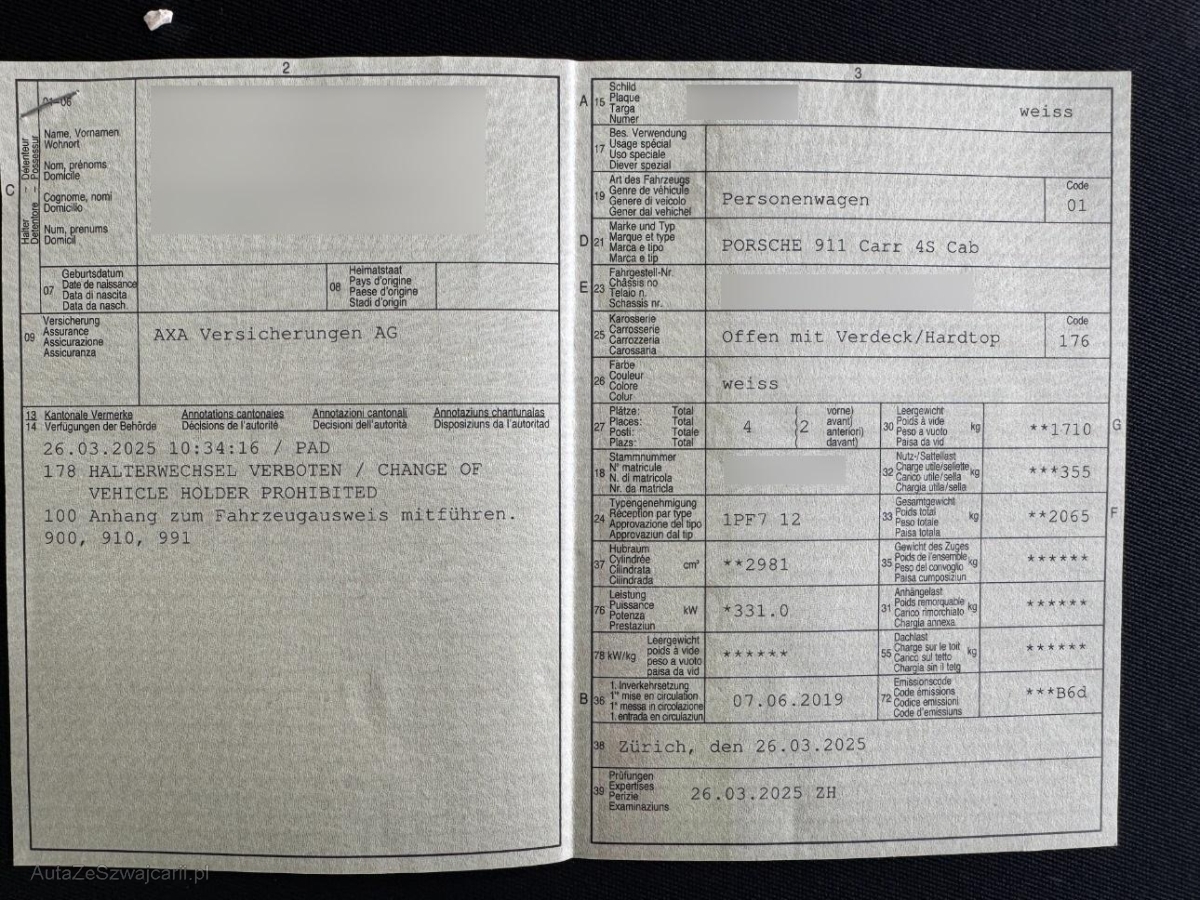 2
01-06
Halter - Détenteur
Detentore - Possessur
C
Name, Vornamen
Wohnort
Nom, prénoms
Domicile
Cognome, nomi
Domicilio
Num, prenums
Domicil
07
Geburtsdatum
Date de naissance
Data di nascita
Data da nasch.
08
Heimatstaat
Pays d'origine
Paese d'origine
Stadi d'origin
09
Versicherung
Assurance
Assicurazione
Assicuranza
AXA Versicherungen AG
13 Kantonale Vermerke Annotations cantonales Annotazioni cantonali Annotaziuns chantunalas
14 Verfügungen der Behörde Décisions de l'autorité Decisioni dell'autorità Disposiziuns da l'autoritad
26.03.2025 10:34:16 / PAD
178 HALTERWECHSEL VERBOTEN / CHANGE OF
VEHICLE HOLDER PROHIBITED
100 Anhang zum Fahrzeugausweis mitführen.
900, 910, 991
AutaZeSzwajcarii.pl
3
A 15
Schild
Plaque
Targa
Numer
weiss
17
Bes. Verwendung
Usage spécial
Uso speciale
Diever spezial
19
Art des Fahrzeugs
Genre de véhicule
Genere di veicolo
Gener dal vehichel
Personenwagen
Code
01
D 21
Marke und Typ
Marque et type
Marca e tipo
Marca e tip
PORSCHE 911 Carr 4S Cab
E 23
Fahrgestell-Nr.
Châssis no
Telaio n.
Schassis nr.
25
Karosserie
Carrosserie
Carrozzeria
Carossaria
Offen mit Verdeck/Hardtop
Code
176
26
Farbe
Couleur
Colore
Colur
weiss
27
Plätze: Total
Places: Total
Posti: Totale
Plazs: Total
4
(2
vorne)
avant)
anteriori)
davant)
30
Leergewicht
Poids à vide
Peso a vuoto
Paisa da vid
kg
**1710
G
18
Stammnummer
N° matricule
N. di matricola
Nr. da matricla
32
Nutz-/Sattellast
Charge utile/sellette
Carico utile/sella
Chargia utila/sella
kg
***355
24
Typengenehmigung
Réception par type
Approvazione del tipo
Approvaziun dal tip
1PF7 12
33
Gesamtgewicht
Poids total
Peso totale
Paisa totala
kg
**2065
F
37
Hubraum
Cylindrée
Cilindrata
Cilindrada
cm³
**2981
35
Gewicht des Zuges
Poids de l'ensemble
Peso del convoglio
Paisa cumposiziun
kg
******
76
Leistung
Puissance
Potenza
Prestaziun
kW
*331.0
31
Anhängelast
Poids remorquable
Carico rimorchiato
Chargia annexa
kg
******
78 kW/kg
Leergewicht
poids à vide
peso a vuoto
paisa da vid
******
55
Dachlast
Charge sur le toit
Carico sul tetto
Chargia sin il tetg
kg
******
B 36
1. Inverkehrsetzung
1re mise en circulation
1a messa in circolazione
1. entrada en circulaziun
07.06.2019
72
Emissionscode
Code émissions
Codice emissioni
Code d'emissiuns
***B6d
38
Zürich, den 26.03.2025
39
Prüfungen
Expertises
Perizie
Examinaziuns
26.03.2025 ZH